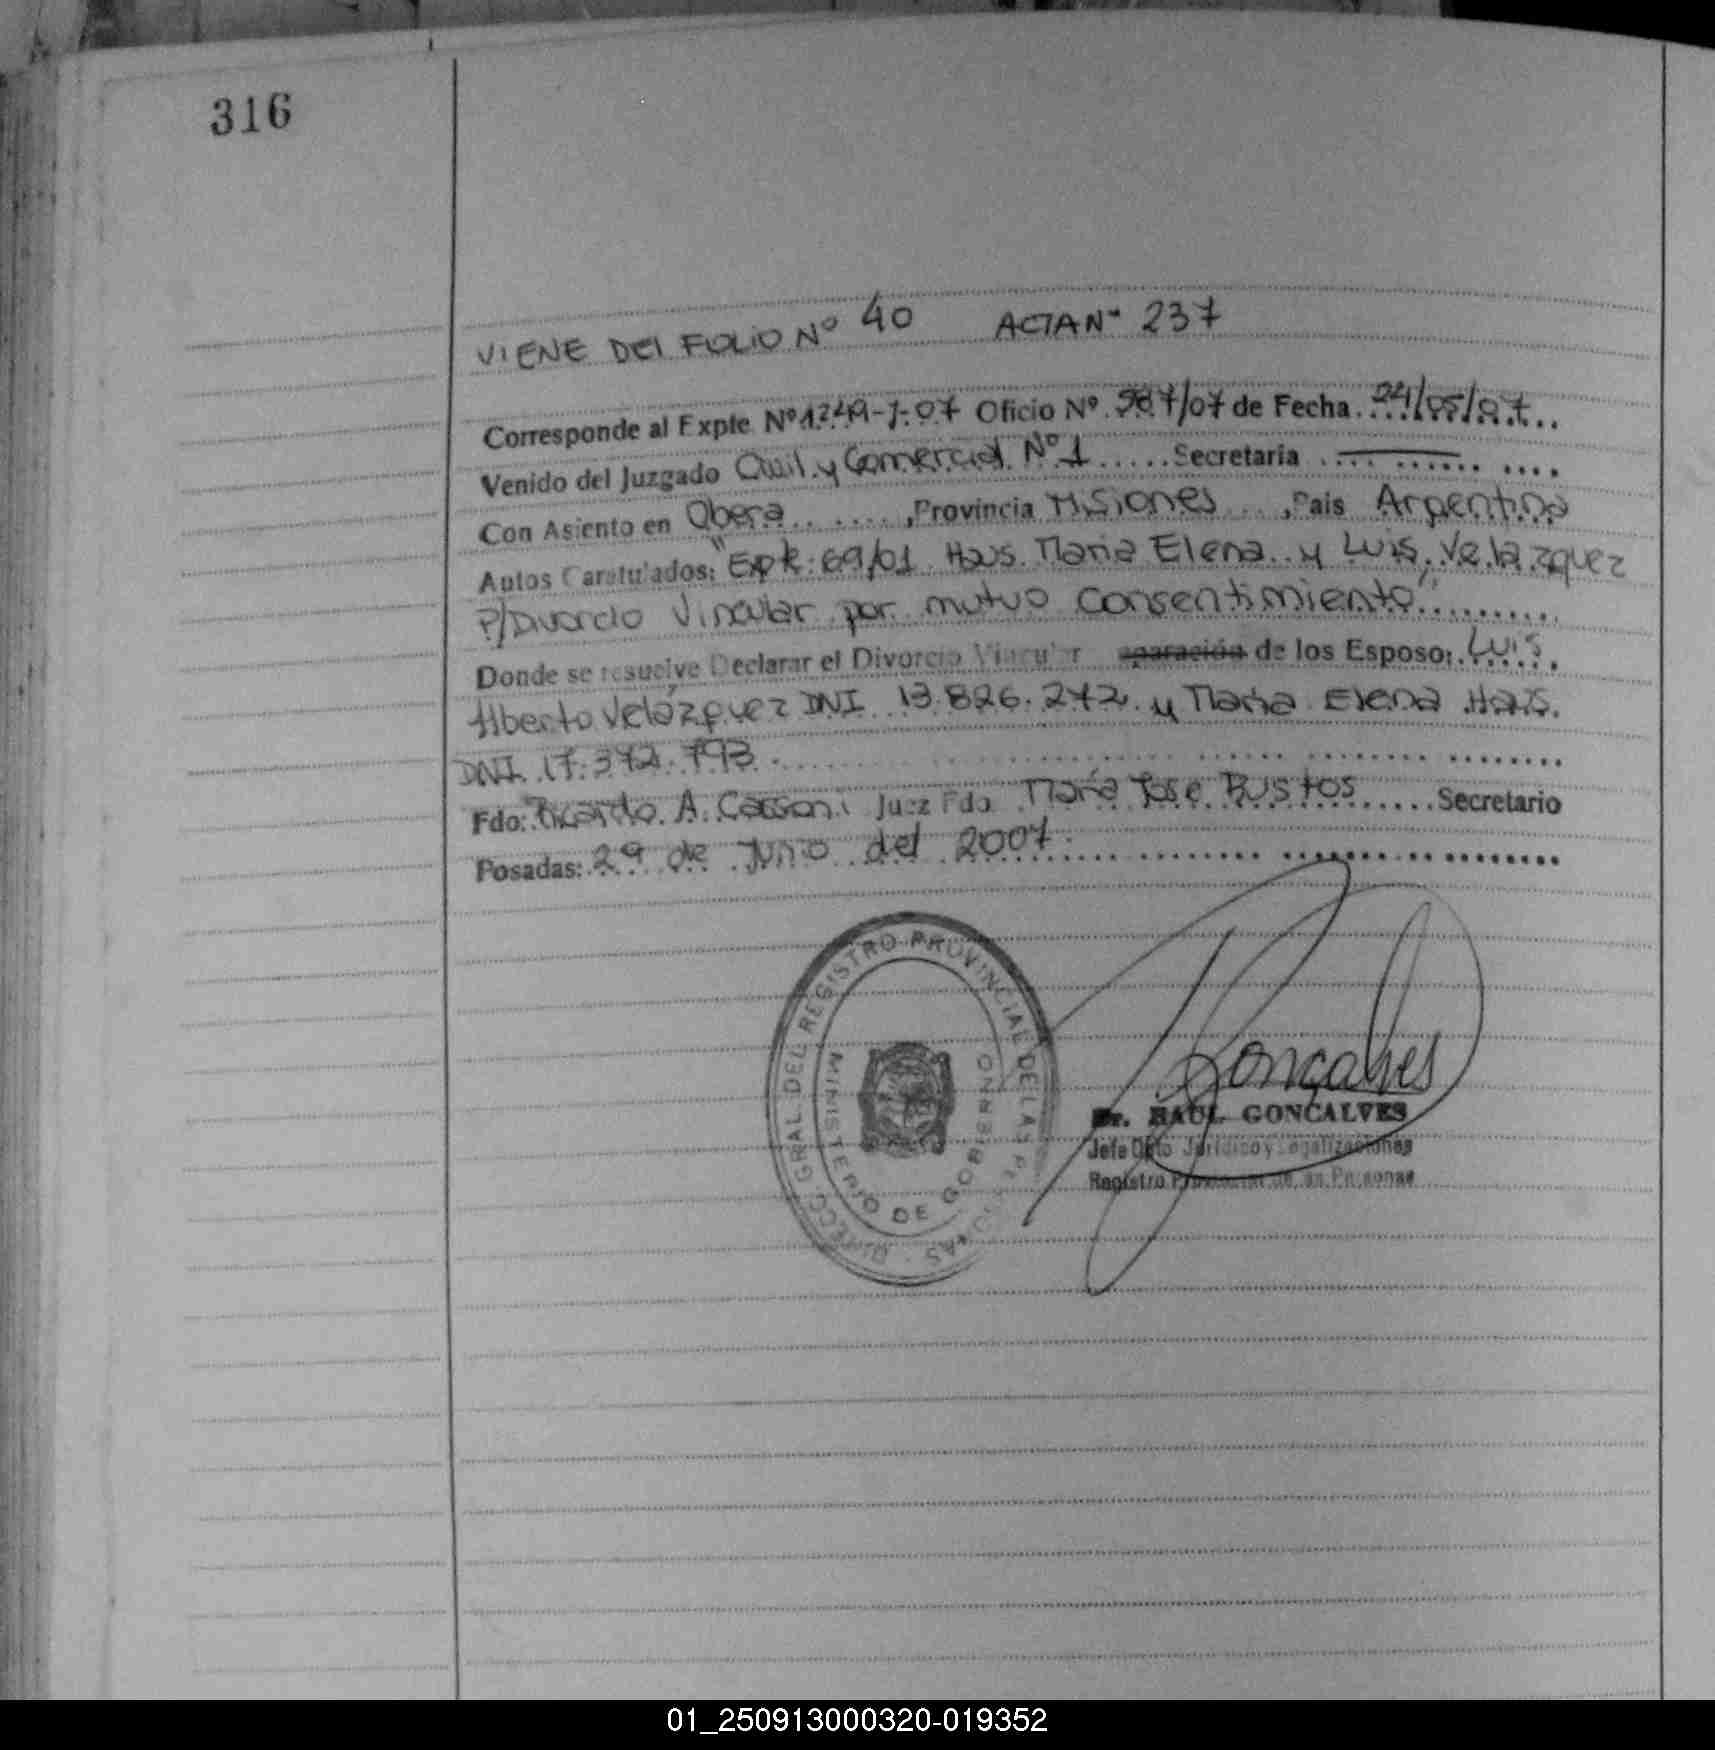 316
VIENE DEL FOLIO Nº 40 ACTA Nº 237
Corresponde al Expte Nº 1249-J-07 Oficio Nº 987/07 de Fecha 24/05/07
Venido del Juzgado Civil y Comercial Nº 1 Secretaria
Con Asiento en Obera, Provincia Misiones, Pais Argentina
Autos Caratulados: "Expte: 69/01 Haus Maria Elena y Luis Velazquez
P/Divorcio Vincular por mutuo Consentimiento"
Donde se resuelve Declarar el Divorcio Vincular aparación de los Esposo: Luis
Alberto Velázquez DNI 13.826.272 y Maria Elena Haus
DNI 17.372.793
Fdo: Ricardo A. Casoni Juez Fdo María Jose Bustos Secretario
Posadas: 29 de Junio del 2007
DIRECC. GRAL. DEL REGISTRO PROVINCIAL DE LAS PERSONAS
MINISTERIO DE GOBIERNO
Goncalves
Dr. RAUL GONCALVES
Jefe Dpto Jurídico y Legalizaciones
Registro Provincial de las Personas
01_250913000320-019352